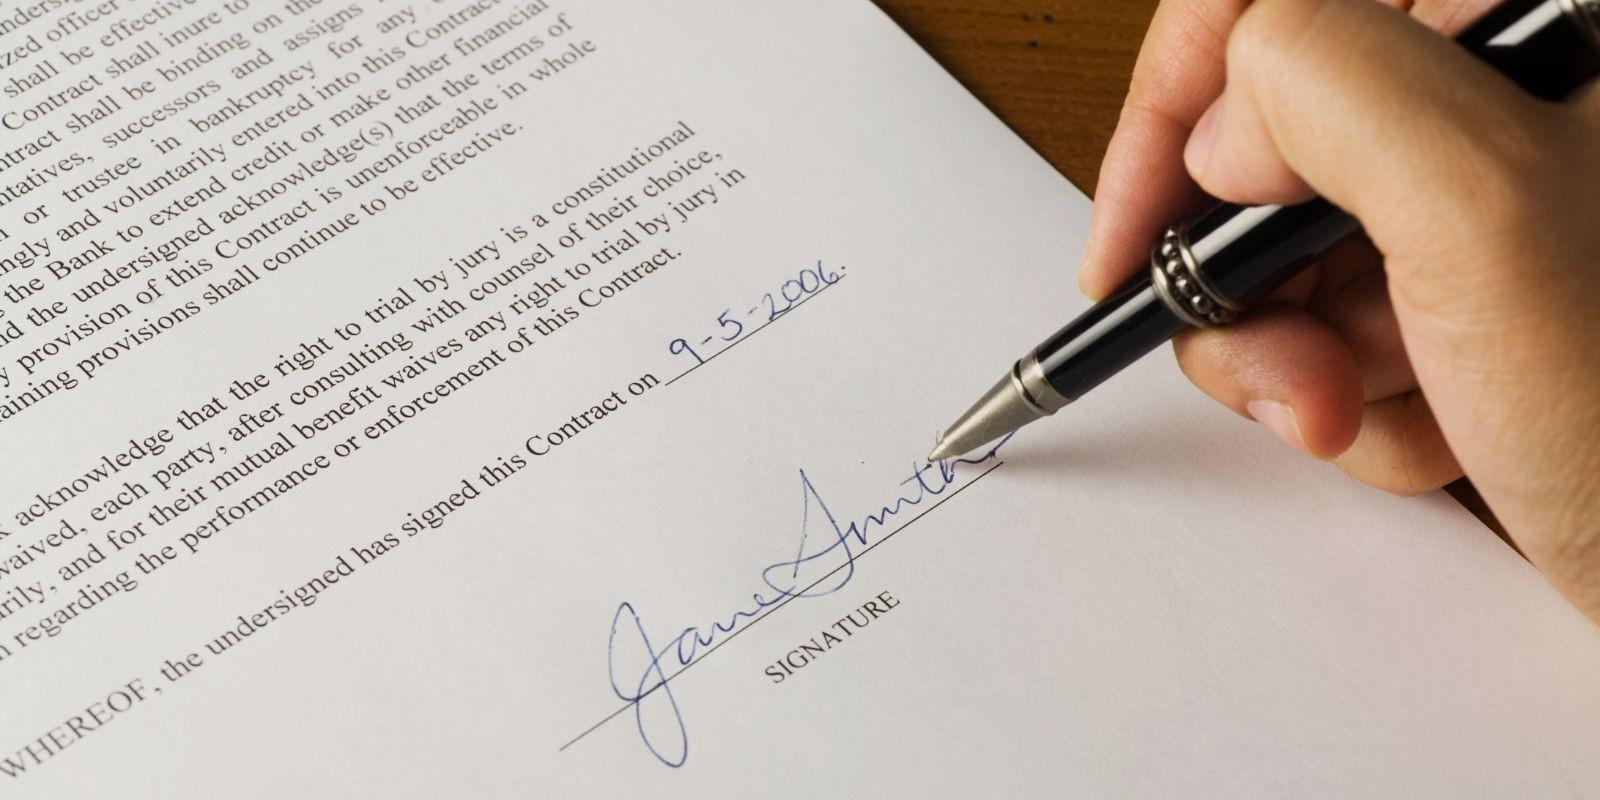 zed officer
shall be effective
Contract shall inure to
ntract shall be binding on the
ntatives, successors and assigns
or trustee in bankruptcy for any
ngly and voluntarily entered into this Contract
the Bank to extend credit or make other financial
nd the undersigned acknowledge(s) that the terms of
y provision of this Contract is unenforceable in whole
aining provisions shall continue to be effective.
acknowledge that the right to trial by jury is a constitutional
waived, each party, after consulting with counsel of their choice,
rily, and for their mutual benefit waives any right to trial by jury in
n regarding the performance or enforcement of this Contract.
WHEREOF, the undersigned has signed this Contract on 9-5-2006.
Jane Smith
SIGNATURE